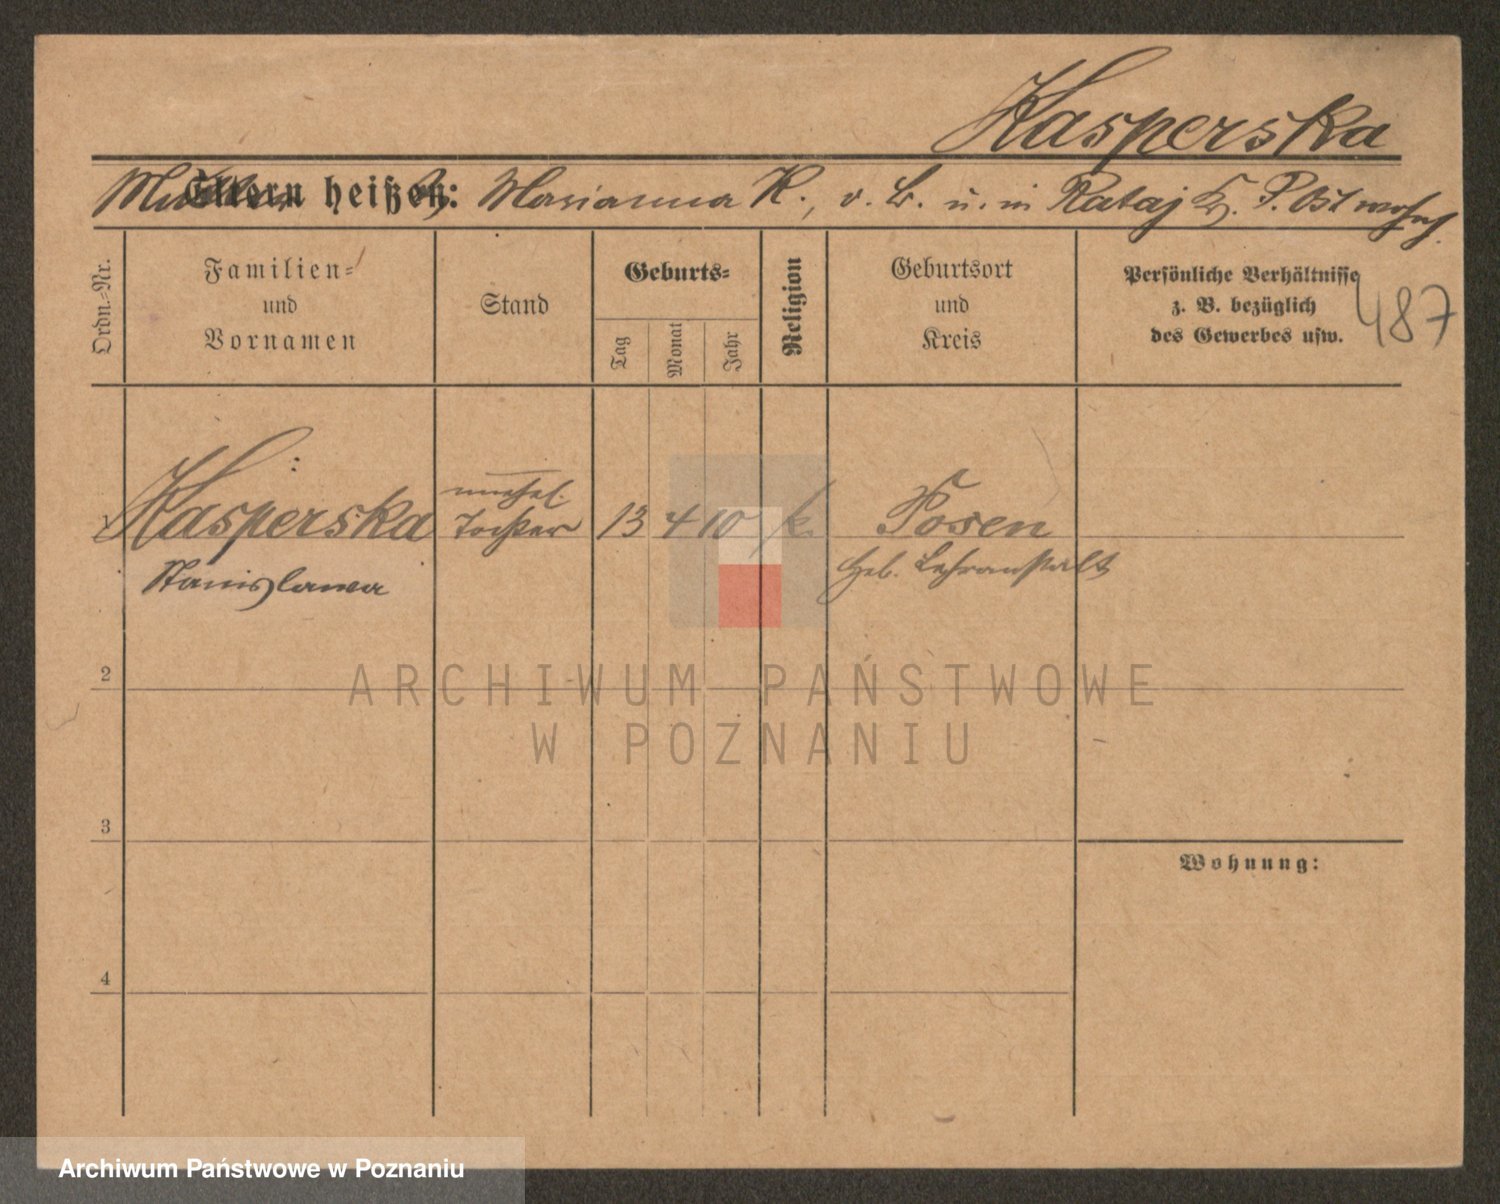 Kasperska
Mutter
Eltern heißen: Marianna K., v. B. u. in Rataj Kr. P. Ost wohnh.
Ordn.-Nr.
Familien-
und
Vornamen
Stand
Geburts-
Tag
Monat
Jahr
Religion
Geburtsort
und
Kreis
Persönliche Verhältnisse
z. B. bezüglich
des Gewerbes usw.
487
1
Kasperska
Stanislawa
unehel.
Tochter
13 4 10 k.
Posen
Heb. Lehranstalt
2
3
4
Wohnung:
ARCHIWUM PAŃSTWOWE
W POZNANIU
Archiwum Państwowe w Poznaniu